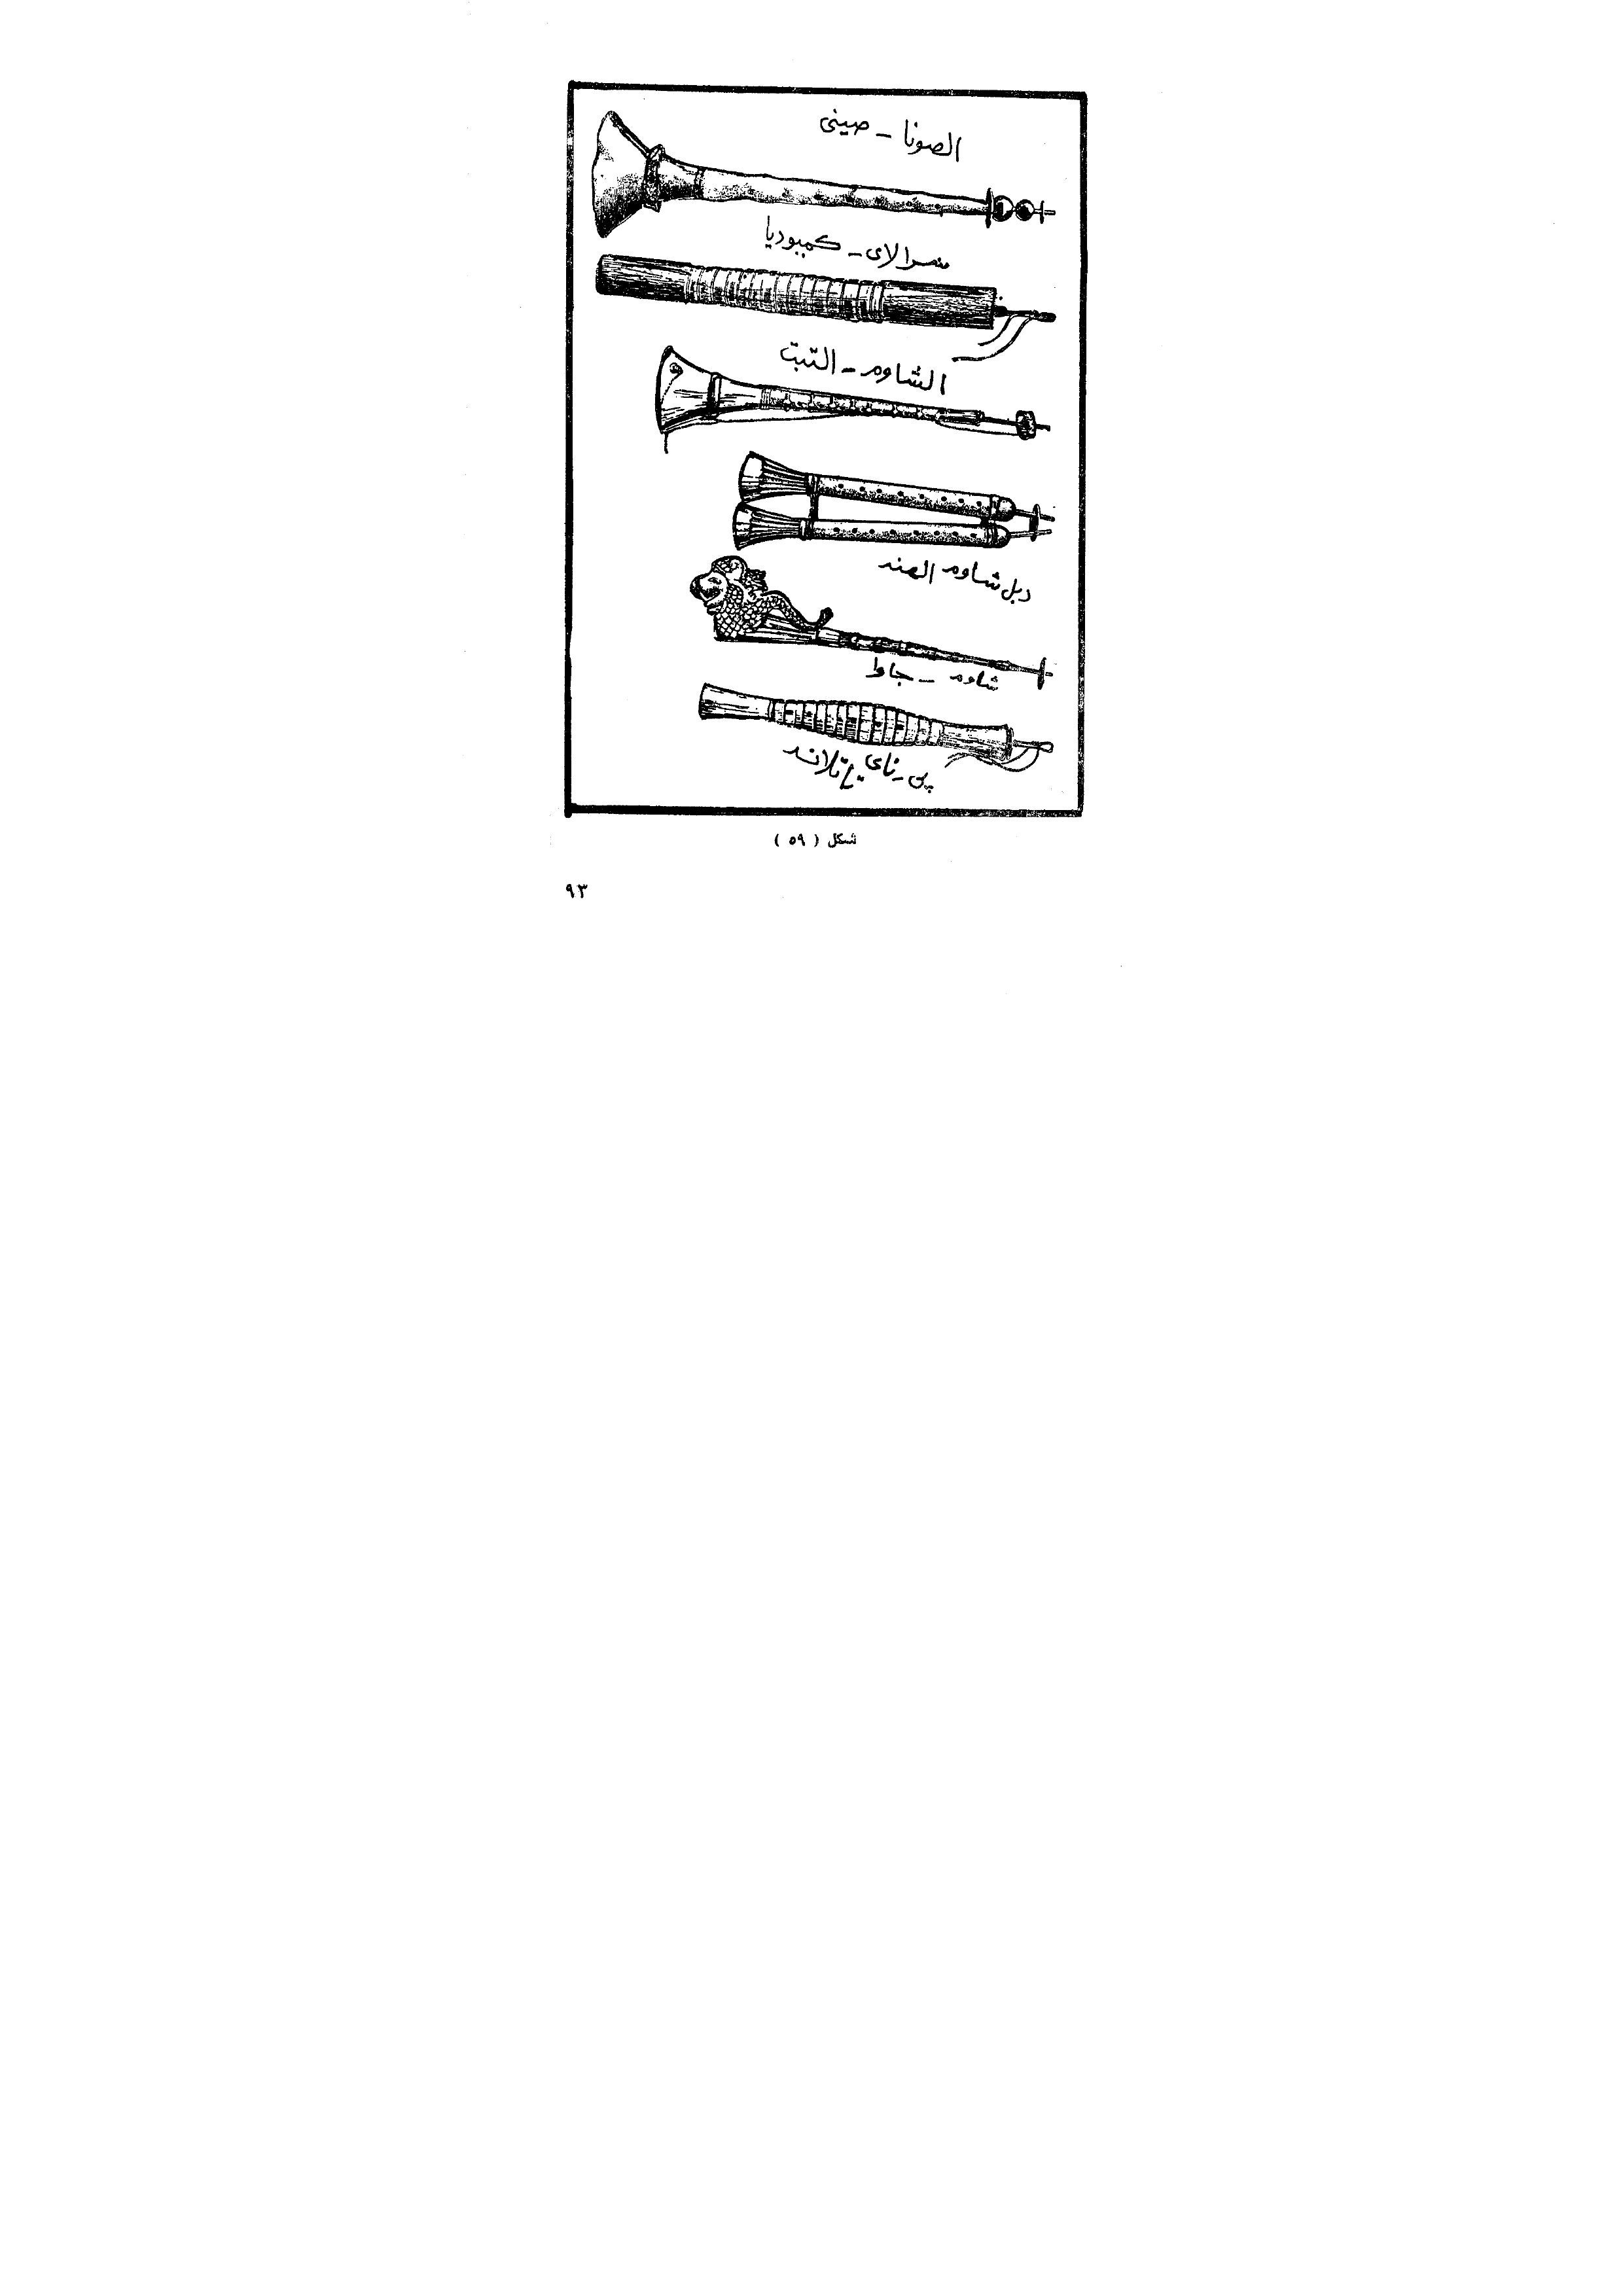 الصونا - صينى
سرالاى - كمبوديا
الشاوم - التبت
دبل شاوم الهند
شاوم - جاوا
پى - ناى تايلاند
شكل ( ٥٩ )
٩٣